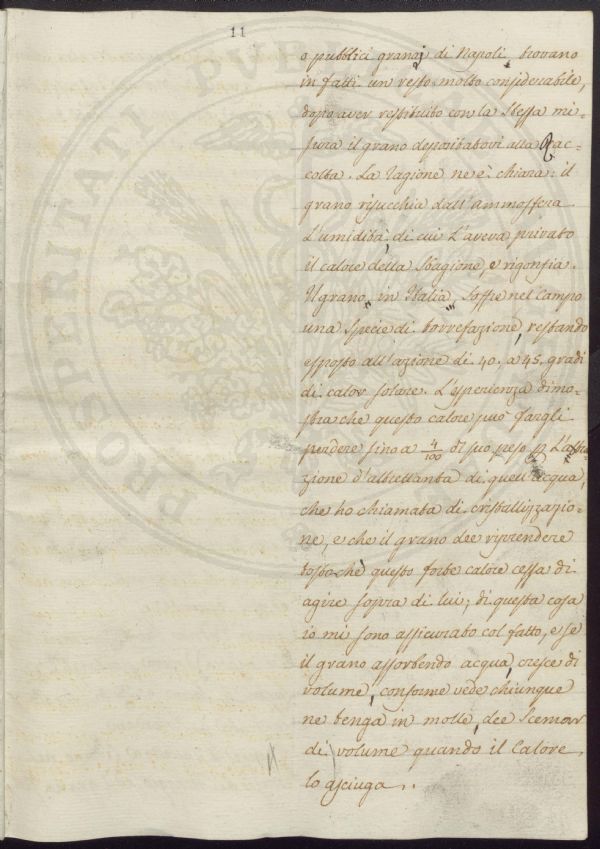 11
o pubblici granaj di Napoli, trovano
in fatti un resto molto considerabile,
dopo aver restituito con la stessa mi-
sura il grano depositatovi alla Rac-
colta. La ragione ne è chiara: il
grano risucchia dall'ammosfera
L'umidità, di cui L'aveva privato
il calore della Stagione, e rigonfia.
Il grano, in Italia, soffre nel Campo
una specie di torrefazione, restando
esposto all'azione di 40. a 45. gradi
di calor solare. L'esperienza dimo-
stra che questo calore può fargli
perdere sino a 4/100 di suo peso p L'attra-
zione d'altrettanta di quell'acqua,
che ho chiamata di cristallizzazio-
ne, e che il grano dee riprendere
tosto che questo forte calore cessa di
agire sopra di lui; di questa cosa
io mi sono assicurato col fatto, e se
il grano assorbendo acqua, cresce di
volume, conforme vede chiunque
ne tenga in molle, dee scemar
di volume quando il Calore
lo asciuga.
PROSPERITATI PUB